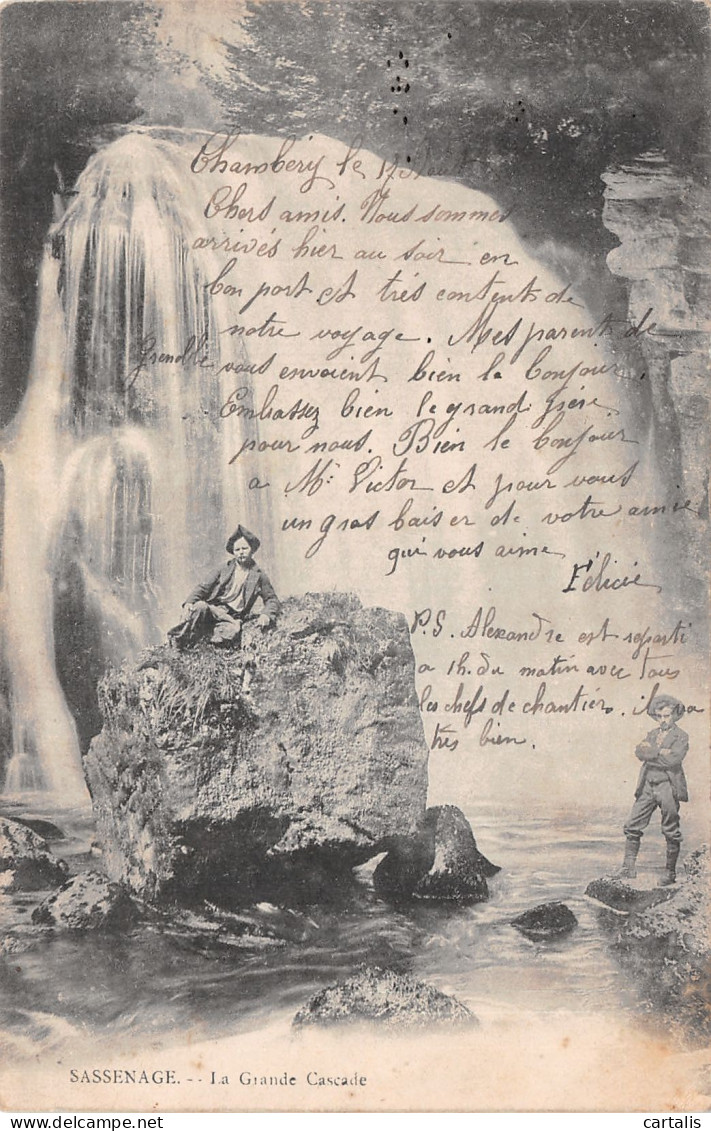 Chambéry le 17
Chers amis. Nous sommes
arrivés hier au soir en
bon port et très content de
notre voyage. Mes parent de
Grenoble vous envoient bien le bonjour.
Embassez bien le grand frère
pour nous. Bien le bonjour
a Mr Victor et pour vous
un gros baiser de votre amie
qui vous aime
Félicie
P.S. Alexandre est reparti
a 1h. du matin avec tous
les chefs de chantier. il va
très bien.
SASSENAGE. -- La Grande Cascade
cartalis